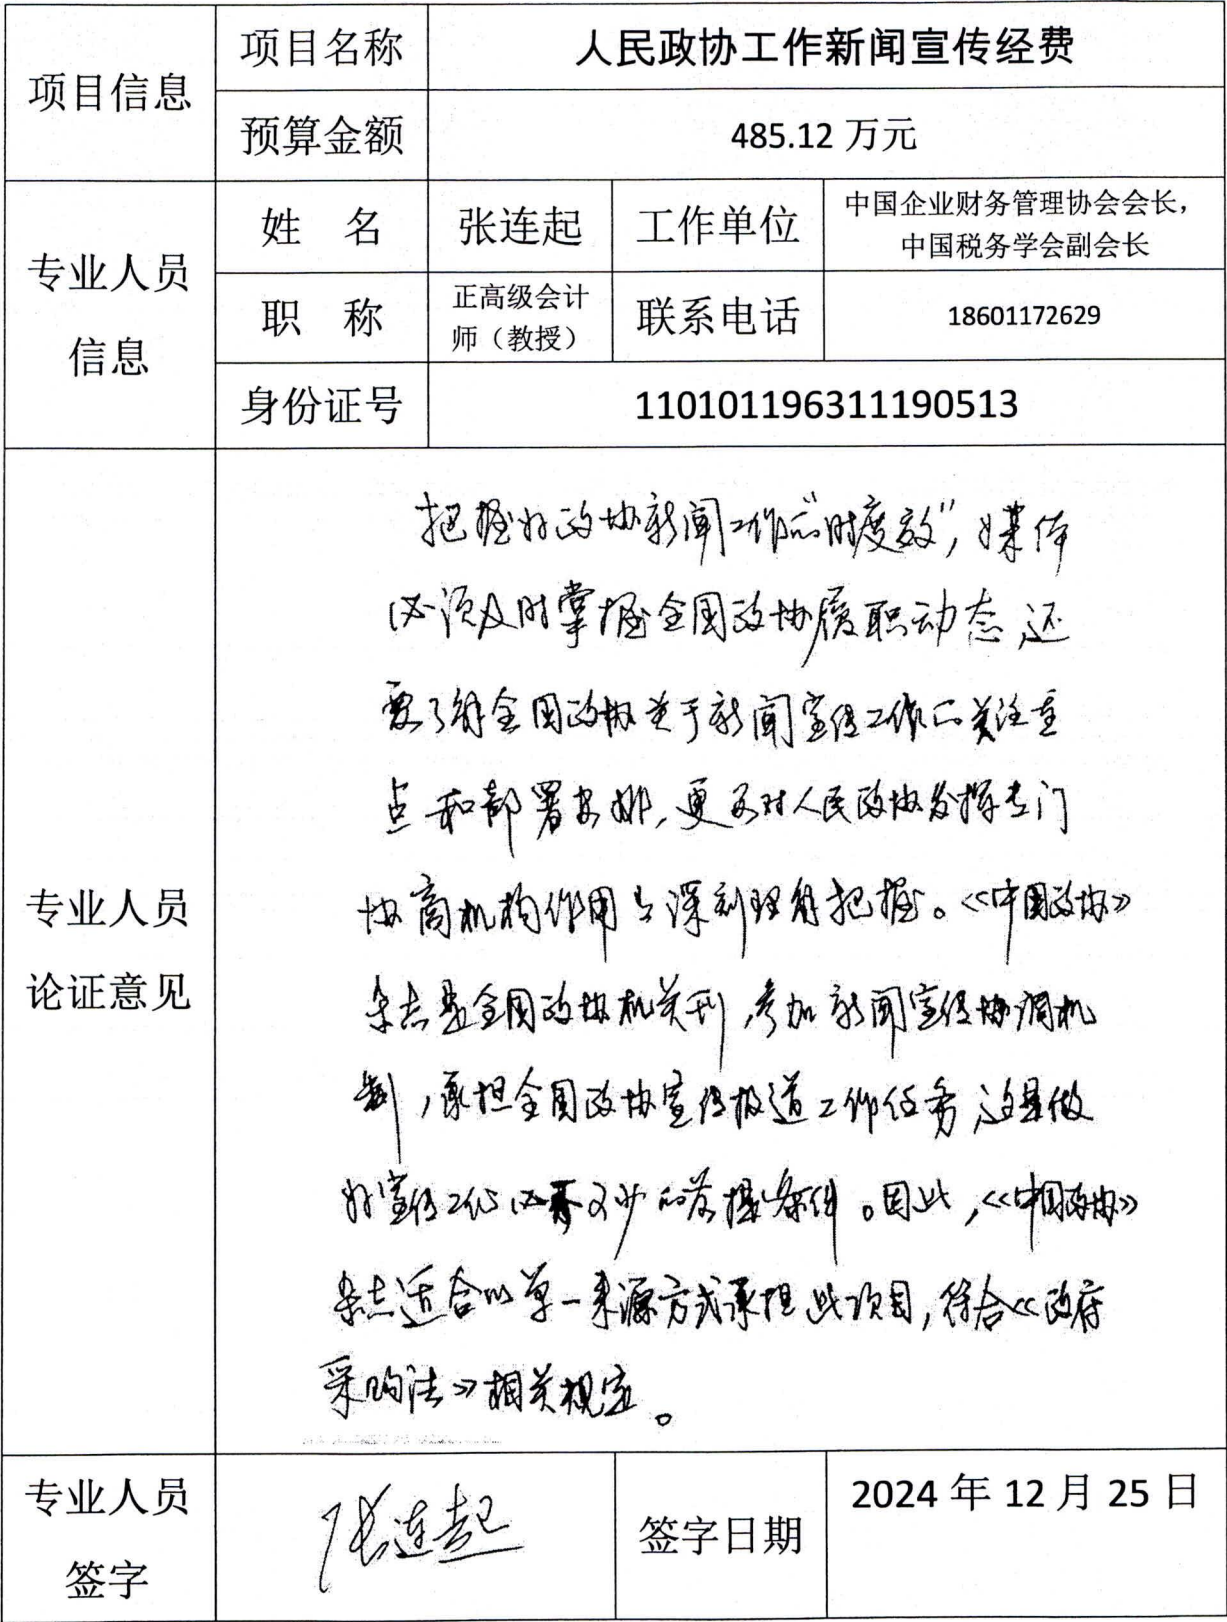 项目信息
项目名称
人民政协工作新闻宣传经费
预算金额
485.12 万元
专业人员
信息
姓 名
张连起
工作单位
中国企业财务管理协会会长，
中国税务学会副会长
职 称
正高级会计
师（教授）
联系电话
18601172629
身份证号
110101196311190513
专业人员
论证意见
把握好政协新闻工作的“时度效”，媒体
必须及时掌握全国政协履职动态，还
要了解全国政协关于新闻宣传工作的关注重
点和部署安排，更要对人民政协发挥专门
协商机构作用有深刻理解把握。《中国政协》
杂志是全国政协机关刊，参加新闻宣传协调机
制，承担全国政协宣传报道工作任务，这是做
好宣传工作必不可少的发揮条件。因此，《中国政协》
杂志适合以单一来源方式承担此项目，符合《政府
采购法》相关规定。
专业人员
签字
张连起
签字日期
2024 年 12 月 25 日